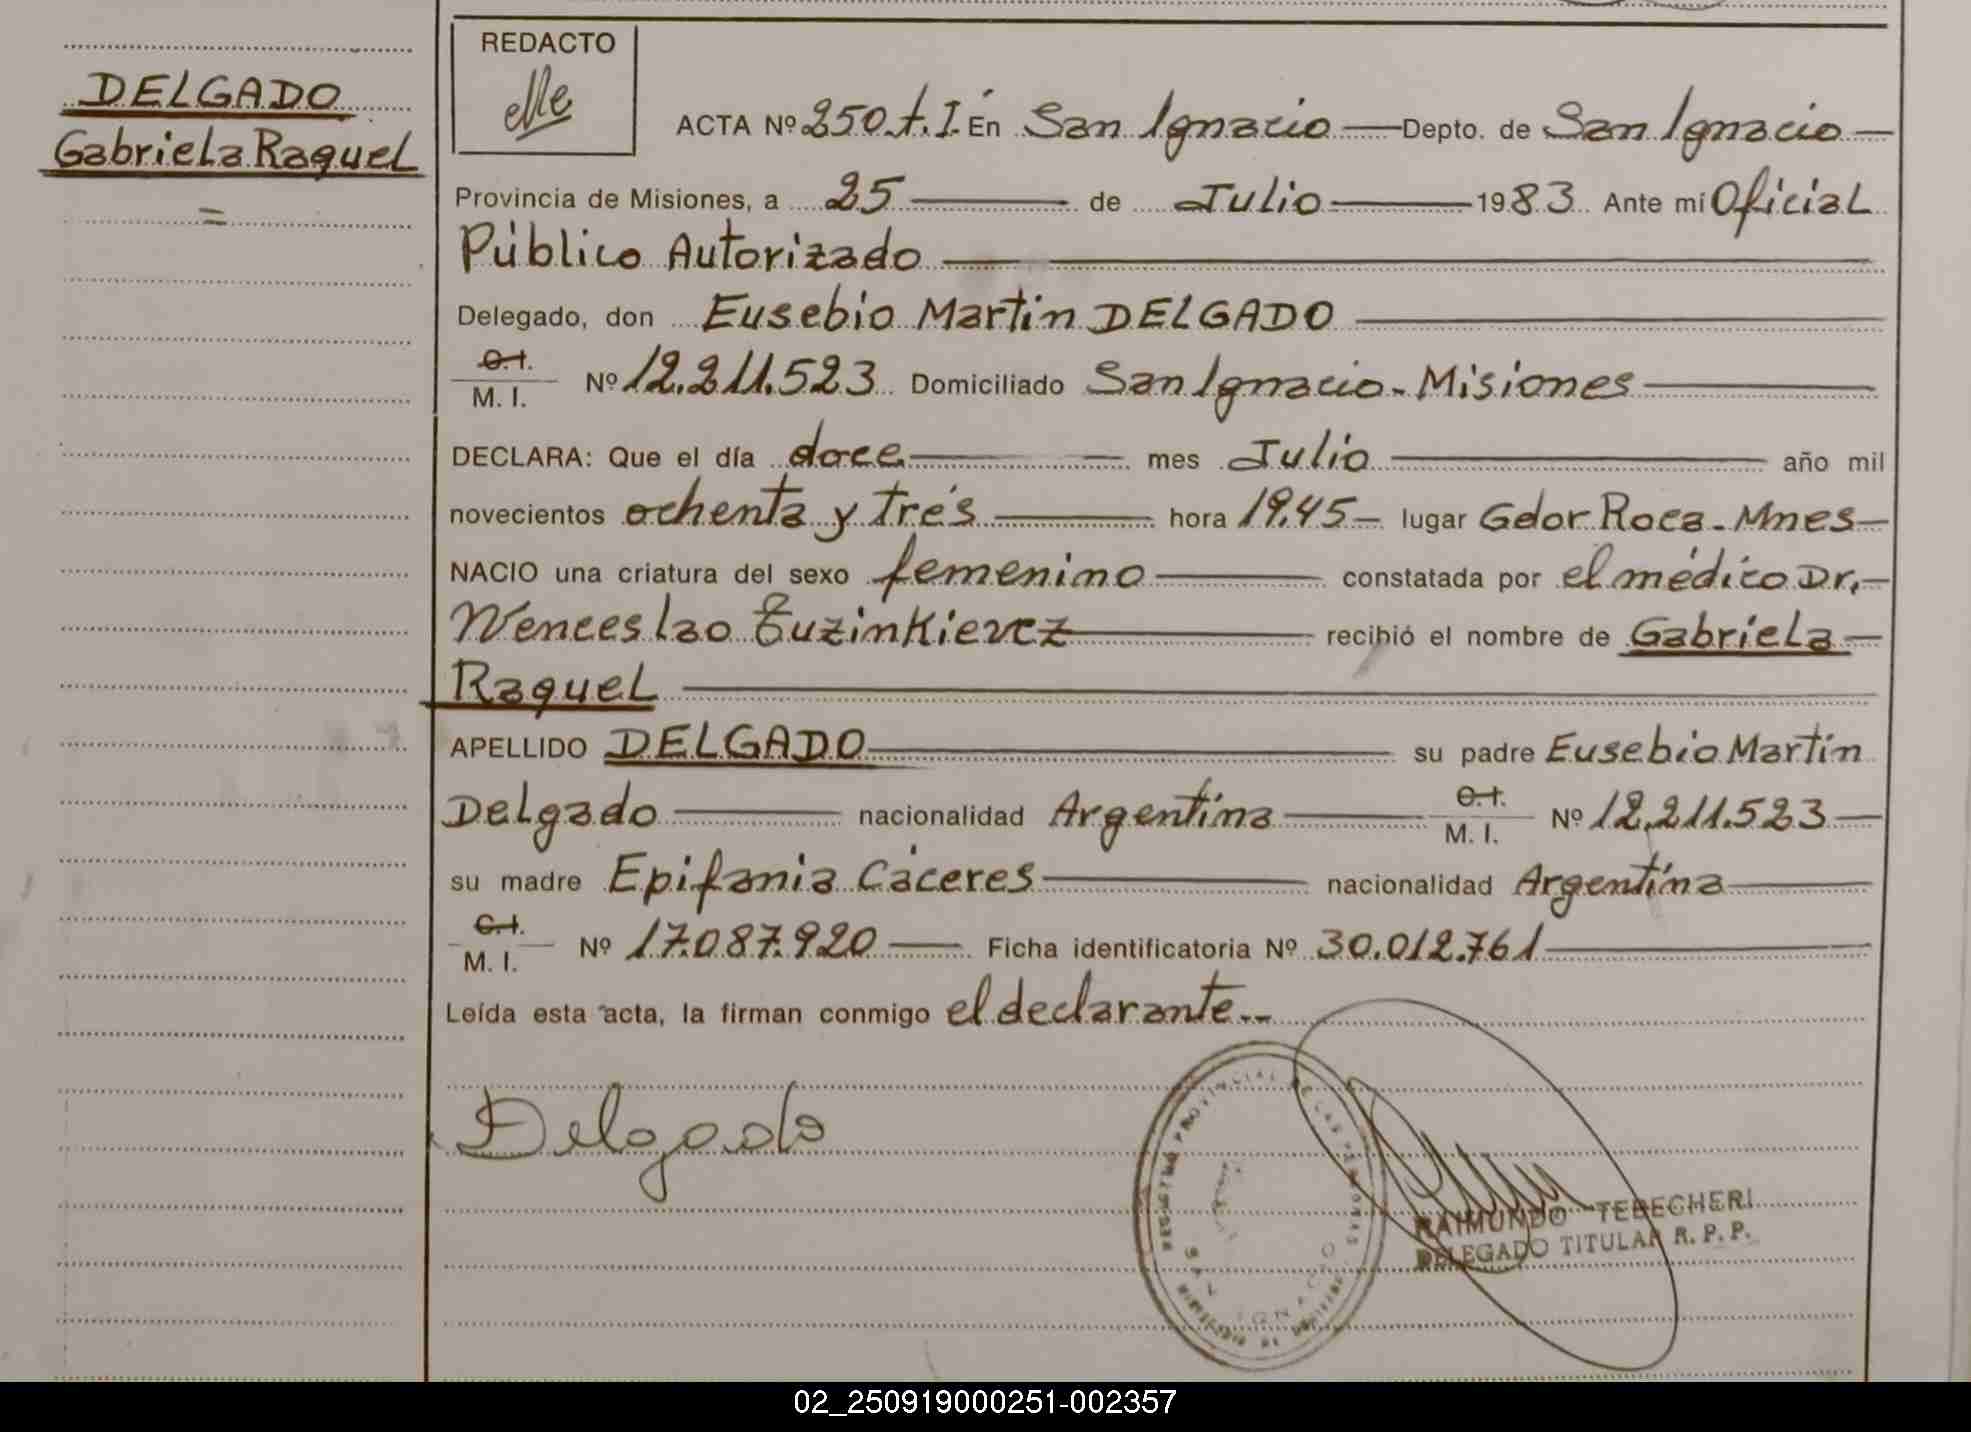 DELGADO
Gabriela Raquel
=
REDACTO
ACTA Nº 250.t.I. En San Ignacio — Depto. de San Ignacio —
Provincia de Misiones, a 25 — de Julio — 1983 Ante mí Oficial
Público Autorizado —
Delegado, don Eusebio Martin DELGADO —
C.I.
M. I. Nº 12.211.523 Domiciliado San Ignacio - Misiones —
DECLARA: Que el día doce — mes Julio — año mil
novecientos ochenta y trés — hora 19.45 — lugar Gdor Roca - Mnes —
NACIO una criatura del sexo femenino — constatada por el médico Dr. —
Wenceslao Tuzinkievcz — recibió el nombre de Gabriela —
Raquel —
APELLIDO DELGADO — su padre Eusebio Martín
Delgado — nacionalidad Argentina — C.I.
M. I. Nº 12.211.523 —
su madre Epifania Cáceres — nacionalidad Argentina —
C.I.
M. I. Nº 17.087.920 — Ficha identificatoria Nº 30.012.761 —
Leída esta acta, la firman conmigo el declarante --
Delgado
REGISTRO PROVINCIAL DE LAS PERSONAS
SAN IGNACIO
RAIMUNDO TEBECHERI
DELEGADO TITULAR R. P. P.
02_250919000251-002357